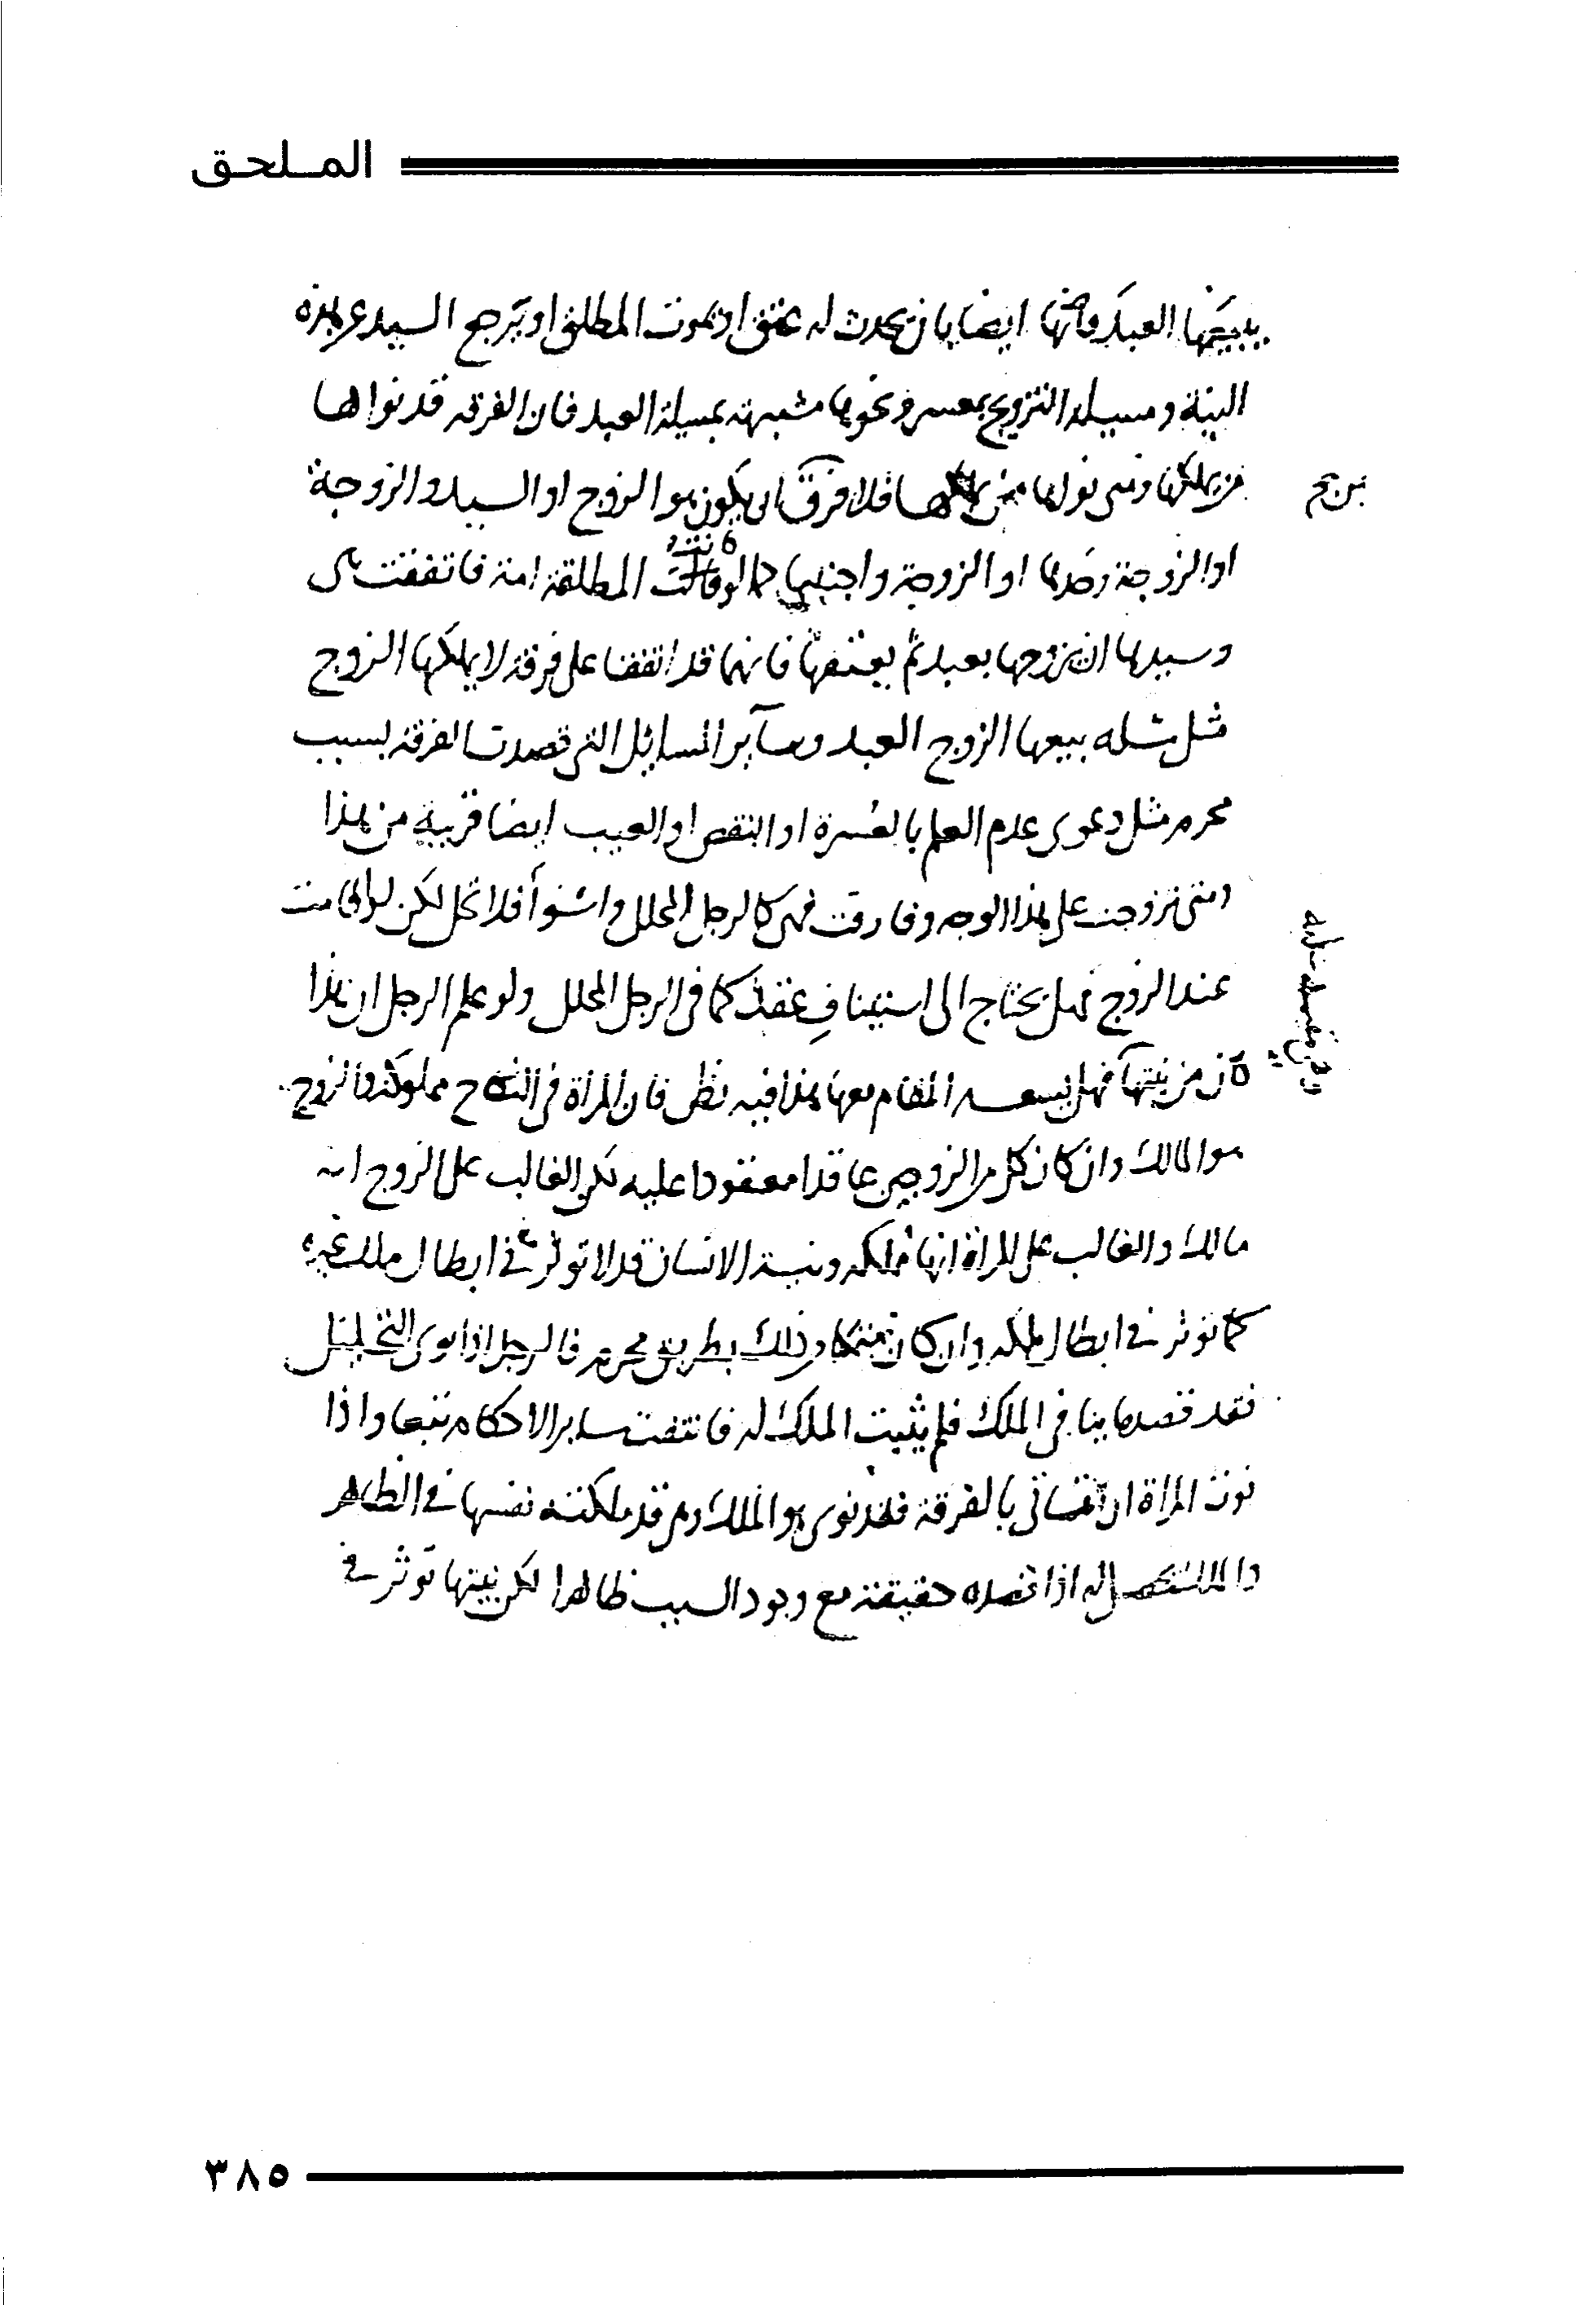 الملحق
العبد فإنها ايضا بان يحدث له عتق او بموت المطلق او يرجع السيد عن هذه
النية ومسيلة التزويج بمعسر ونحوها مشبهة بمسيلة العبد فان الفرقة قد نواها
من يملكها ومتى نواها من يملكها فلا فرق ان يكون هو الزوج او السيد والزوجة
او الزوجة وحدها او الزوجة واجنبي كما لو كانت المطلقة امة فاتفقت هي
وسيدها ان يزوجها بعبد ثم يعتقها فانهما قد اتفقا على فرقة لا يملكها الزوج
مثل مسله بيعها الزوج العبد وسآير المسايل التي قصدت الفرقة بسبب
محرم مثل دعوى عدم العلم بالعسرة او النقص او العيب ايضا قريبة من هذا
ومتى تزوجت على هذا الوجه وفارقت فهي كالرجل المحلل واسوأ فلا تحل لكن لو اقامت
عند الزوج فهل يحتاج الى استيناف عقد كما في الرجل المحلل ولو علم الرجل ان هذا
كان من نيتها فهل يسعه المقام معها هذا فيه نظر فان المرأة في النكاح مملوكة والزوج
هو المالك وان كان كل من الزوجين عاقدا معقودا عليه لكن الغالب على الزوج انه
مالك والغالب على المرأة انها مملكة ونية الانسان قد لا توثر في ابطال ملك غيره
كما توثر في ابطال ملكه وان كان متمكنا من ذلك بطريق محرم فالرجل اذا نوى التحليل
فقد قصد ما ينافي الملك فلم يثبت الملك له فانتفت ساير الاحكام تبعا واذا
نوت المرأة ان تأتي بالفرقة فقد نوى هو الملك وهي قد ملكته نفسها في الظاهر
والملك يحصل له اذا قصده حقيقة مع وجود السبب ظاهرا لكن نيتها توثر في
٣٨٥